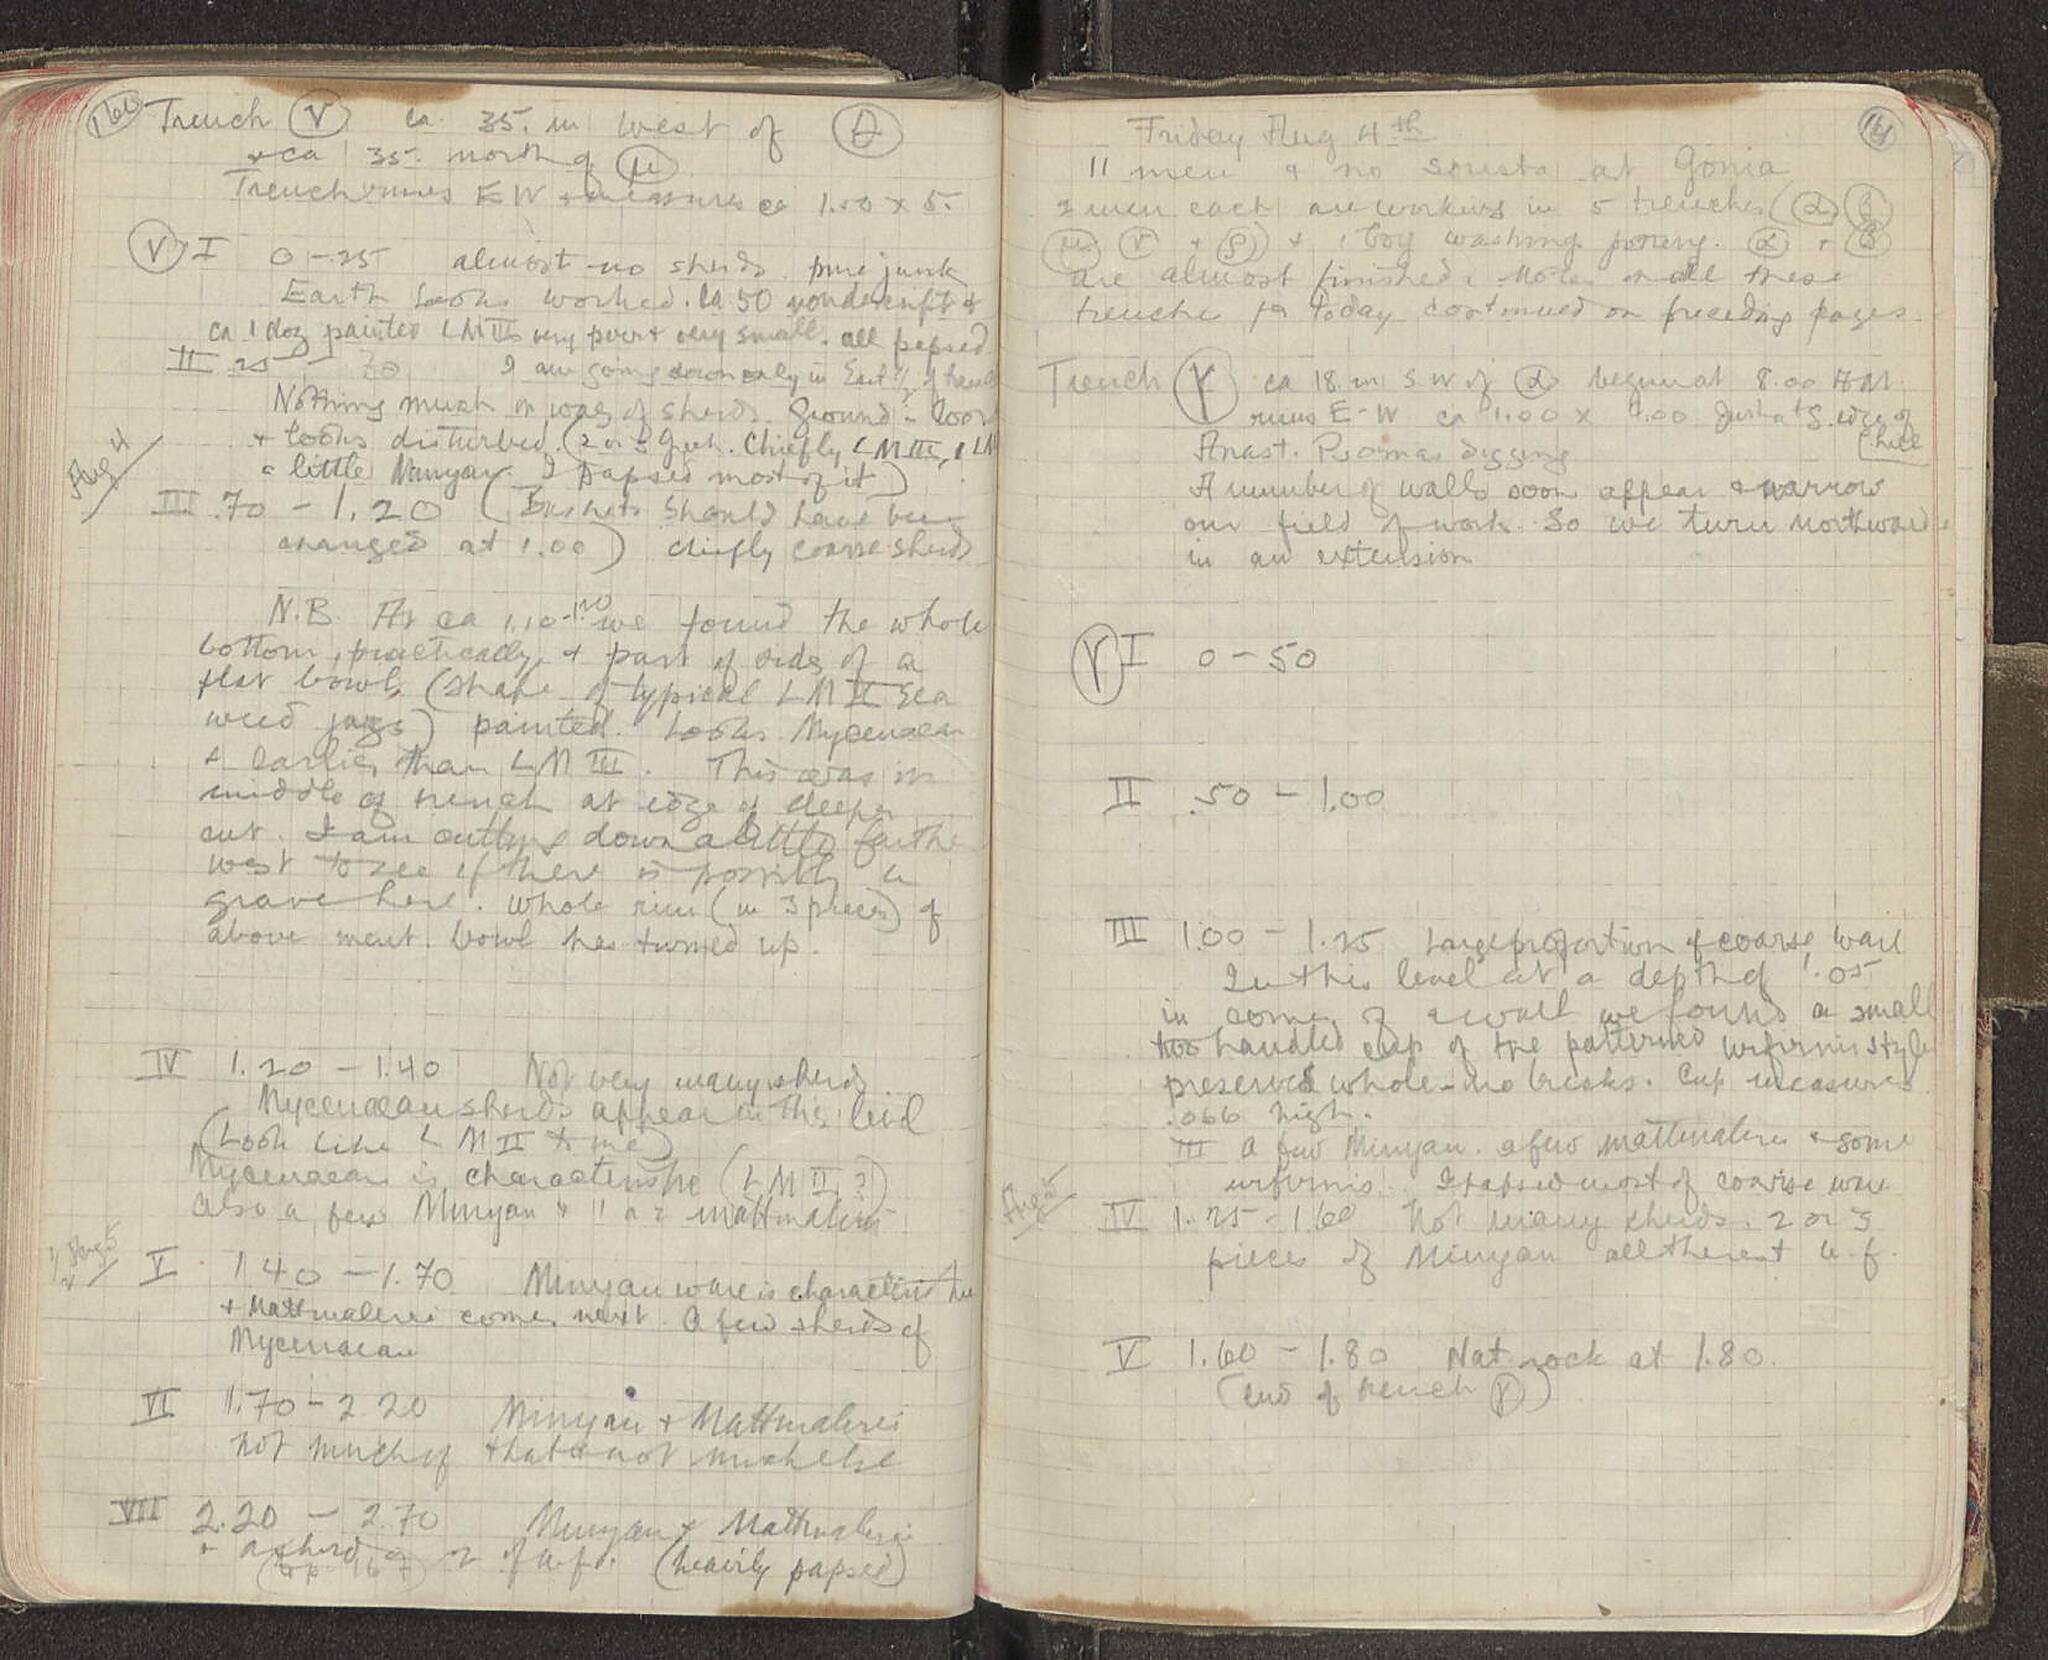 160
Trench ν ca 35. m west of θ
+ ca 35. north of μ
Trench runs EW + measures ca 1.50 x 5.
ν I 0 - .25 almost no sherds. pure junk
Earth looks worked. ca 50 nondescript +
ca 1 doz painted LM III very poor + very small. all papsed
II .25 - 70 I am going down only in East ½ of trench
Nothing much in way of sherds. Ground is loose
+ looks disturbed. (2 or 3 Geek. Chiefly LM III, 1 LM
a little Minyan. I papsed most of it)
Aug 4
III .70 - 1.20 (Baskets should have been
changed at 1.00) chiefly coarse sherds
N.B. At ca 1.10-1.20 we found the whole
bottom, practically, + part of side of a
flat bowl, (shape of typical LM II sea
weed jugs) painted. Looks Mycenaean
+ earlier than LM III. This was in
middle of trench at edge of deeper
cut. I am cutting down a little farther
west to see if there is possibly a
grave here. Whole rim (in 3 pieces) of
above ment. bowl has turned up.
IV 1.20 - 1.40 Not very many sherds
Mycenaean sherds appear in this level
(Look like LM II to me)
Mycenaean is characteristic (LM II ?)
Also a few Minyan + 1 or 2 mattmalerei
½ Aug 5
V 1.40 - 1.70 Minyan ware is characteristic
+ Mattmalerei comes next. A few sherds of
Mycenaean
VI 1.70 - 2.20 Minyan + Mattmalerei
not much of that + not much else
VII 2.20 - 2.70 Minyan + Mattmalerei
+ a sherd or 2 of u.f. (heavily papsed)
(to p. 167)
161
Friday Aug 4th
11 men + no sousta at Gonia
2 men each are working in 5 trenches (α β
μ ν + ρ) + 1 boy washing pottery. α + β
are almost finished. Notes on all these
trenches for today continued on preceding pages.
Trench γ ca 18 m SW of α begun at 8.00 AM
runs E-W ca 1.00 x 4.00 Just at S. edge of
hill
Anast. Psomas digging
A number of walls soon appear + narrow
our field of work. So we turn northward
in an extension
γ I 0 - 50
II .50 - 1.00
III 1.00 - 1.25 Large proportion of coarse ware
In this level at a depth of 1.05
in corner of a wall we found a small
two handled cup of the patterned urfirnis style
preserved whole - no breaks. Cup measures
.066 high.
III A few Minyan. a few mattmalerei + some
urfirnis. I papsed most of coarse ware
Aug 5
IV 1.25 - 1.60 Not many sherds. 2 or 3
pieces of Minyan all the rest u.f.
V 1.60 - 1.80 Nat. rock at 1.80.
(end of trench γ)